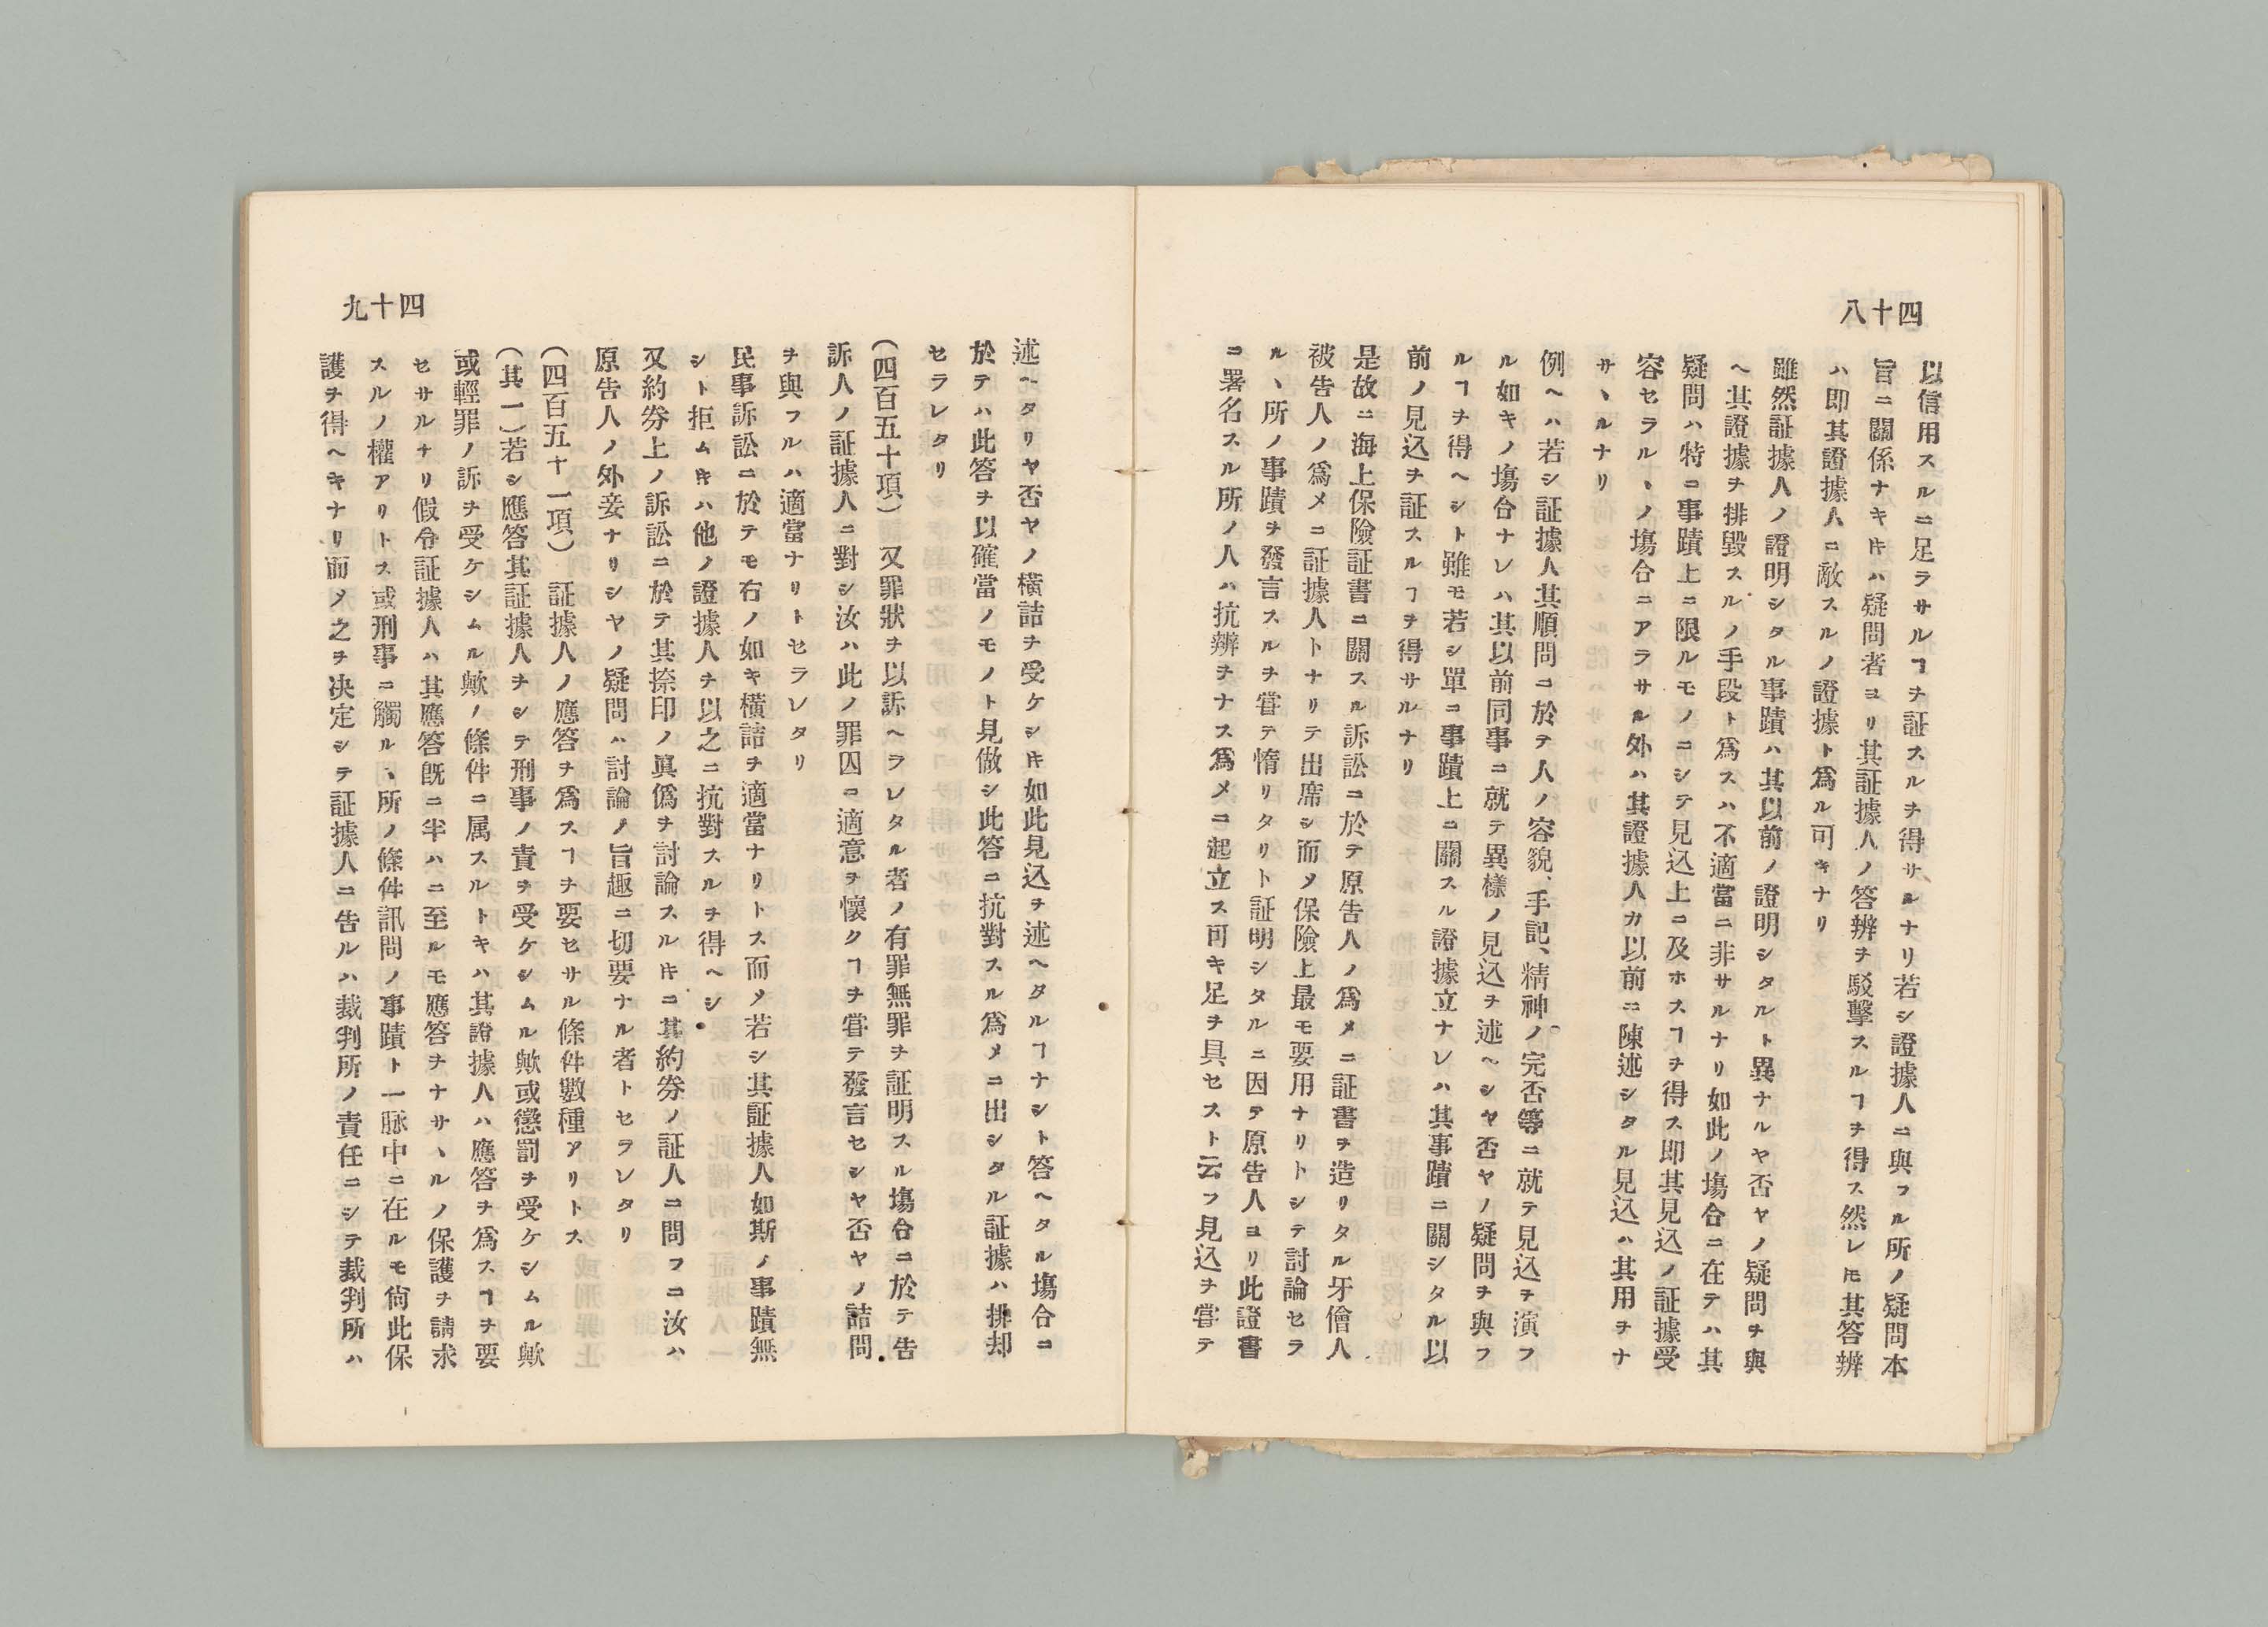 四十八
以信用スルニ足ラサルヿヲ証スルヲ得サルナリ若シ證據人ニ與フル所ノ疑問本
旨ニ關係ナキ𪜈ハ疑問者ヨリ其証據人ノ答辨ヲ駁擊スルヿヲ得ス然レ𪜈其答辨
ハ即其證據人ニ敵スルノ證據ト爲ル可キナリ
雖然証據人ノ證明シタル事蹟ハ其以前ノ證明シタルト異ナルヤ否ヤノ疑問ヲ與
ヘ其證據ヲ排毀スルノ手段ト爲スハ不適當ニ非サルナリ如此ノ塲合ニ在テハ其
疑問ハ特ニ事蹟上ニ限ルモノニシテ見込上ニ及ホスヿヲ得ス即其見込ノ証據受
容セラルヽノ塲合ニアラサル外ハ其證據人カ以前ニ陳述シタル見込ハ其用ヲナ
サヽルナリ
例ヘハ若シ証據人其順問ニ於テ人ノ容貌、手記、精神ノ完否等ニ就テ見込ヲ演フ
ル如キノ塲合ナレハ其以前同事ニ就テ異樣ノ見込ヲ述ヘシヤ否ヤノ疑問ヲ與フ
ルヿヲ得ヘシト雖モ若シ單ニ事蹟上ニ關スル證據立ナレハ其事蹟ニ關シタル以
前ノ見込ヲ証スルヿヲ得サルナリ
是故ニ海上保險証書ニ關スル訴訟ニ於テ原告人ノ爲メニ証書ヲ造リタル牙儈人
被告人ノ爲メニ証據人トナリテ出席シ而メ保險上最モ要用ナリトシテ討論セラ
ルヽ所ノ事蹟ヲ發言スルヲ甞テ惰リタリト証明シタルニ因テ原告人ヨリ此證書
ニ署名スル所ノ人ハ抗辨ヲナス爲メニ起立ス可キ足ヲ具セスト云フ見込ヲ甞テ
四十九
述ヘタリヤ否ヤノ橫詰ヲ受ケシ𪜈如此見込ヲ述ヘタルヿナシト答ヘタル塲合ニ
於テハ此答ヲ以確當ノモノト見做シ此答ニ抗對スル爲メニ出シタル証據ハ排却
セラレタリ
（四百五十項） 又罪狀ヲ以訴ヘラレタル者ノ有罪無罪ヲ証明スル塲合ニ於テ告
訴人ノ証據人ニ對シ汝ハ此ノ罪囚ニ適意ヲ懷クヿヲ甞テ發言セシヤ否ヤノ詰問
ヲ與フルハ適當ナリトセラレタリ
民事訴訟ニ於テモ右ノ如キ橫詰ヲ適當ナリトス而メ若シ其証據人如斯ノ事蹟無
シト拒ム𪜈ハ他ノ證據人ヲ以之ニ抗對スルヲ得ヘシ
又約券上ノ訴訟ニ於テ其捺印ノ眞僞ヲ討論スル𪜈ニ其約券ノ証人ニ問フニ汝ハ
原告人ノ外妾ナリシヤノ疑問ハ討論ノ旨趣ニ切要ナル者トセラレタリ
（四百五十一項） 証據人ノ應答ヲ爲スヿヲ要セサル條件數種アリトス
（其一）若シ應答其証據人ヲシテ刑事ノ責ヲ受ケシムル歟或懲罰ヲ受ケシムル歟
或輕罪ノ訴ヲ受ケシムル歟ノ條件ニ属スルトキハ其證據人ハ應答ヲ爲スヿヲ要
セサルナリ假令証據人ハ其應答既ニ半ハニ至ルモ應答ヲナサヽルノ保護ヲ請求
スルノ權アリトス或刑事ニ觸ルヽ所ノ條件訊問ノ事蹟ト一脈中ニ在ルモ尙此保
護ヲ得ヘキナリ而メ之ヲ决定シテ証據人ニ告ルハ裁判所ノ責任ニシテ裁判所ハ